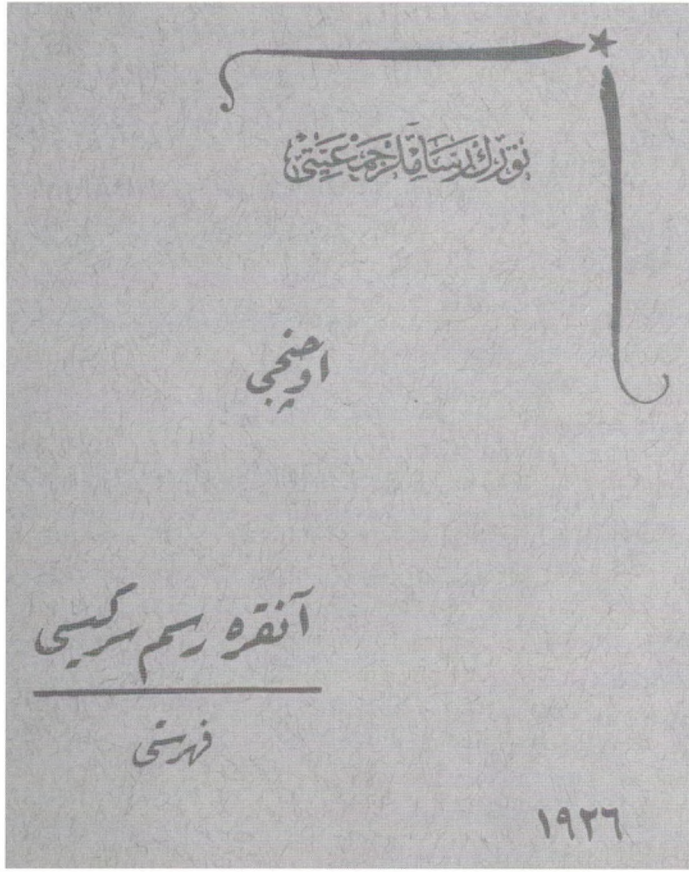 تورك رساملر جمعیتی
اوچنجی
آنقره رسم سرکیسی
فهرستی
١٩٢٦